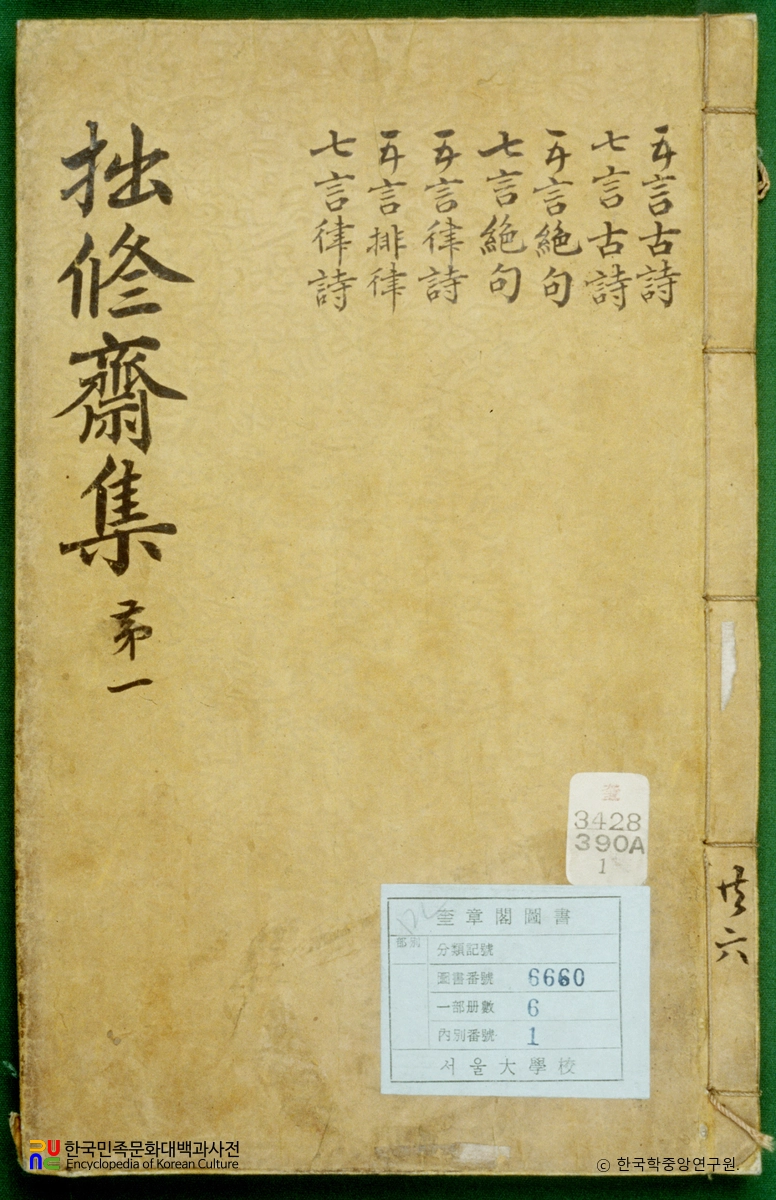 五言古詩
七言古詩
五言絶句
七言絶句
五言律詩
五言排律
七言律詩
拙修齋集
第一
共六
奎
3428
390A
1
奎章閣圖書
部別
分類記號
圖書番號 6660
一部册數 6
內別番號 1
서울大學校
한국민족문화대백과사전
Encyclopedia of Korean Culture
© 한국학중앙연구원.